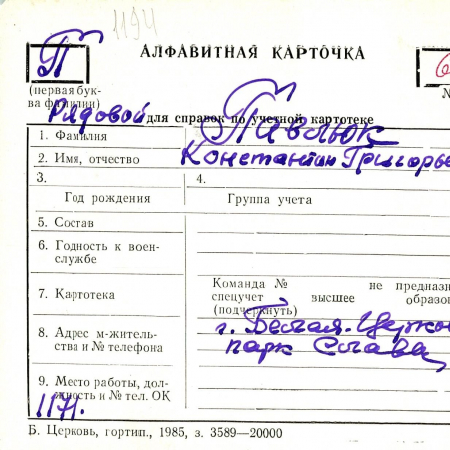 1194
АЛФАВИТНАЯ КАРТОЧКА
П
(первая бук-
ва фамилии)
Рядовой для справок по учетной картотеке
1. Фамилия Павлюк
2. Имя, отчество Константин Григорье
3. 4.
Год рождения Группа учета
5. Состав
6. Годность к воен-
службе
Команда № не предназн
7. Картотека спецучет высшее образо
(подчеркнуть)
8. Адрес м-житель- г. Белая-Церко
ства и № телефона парк Слава,
9. Место работы, долж-
ность и № тел. ОК
1171.
Б. Церковь, гортип., 1985, з. 3589—20000